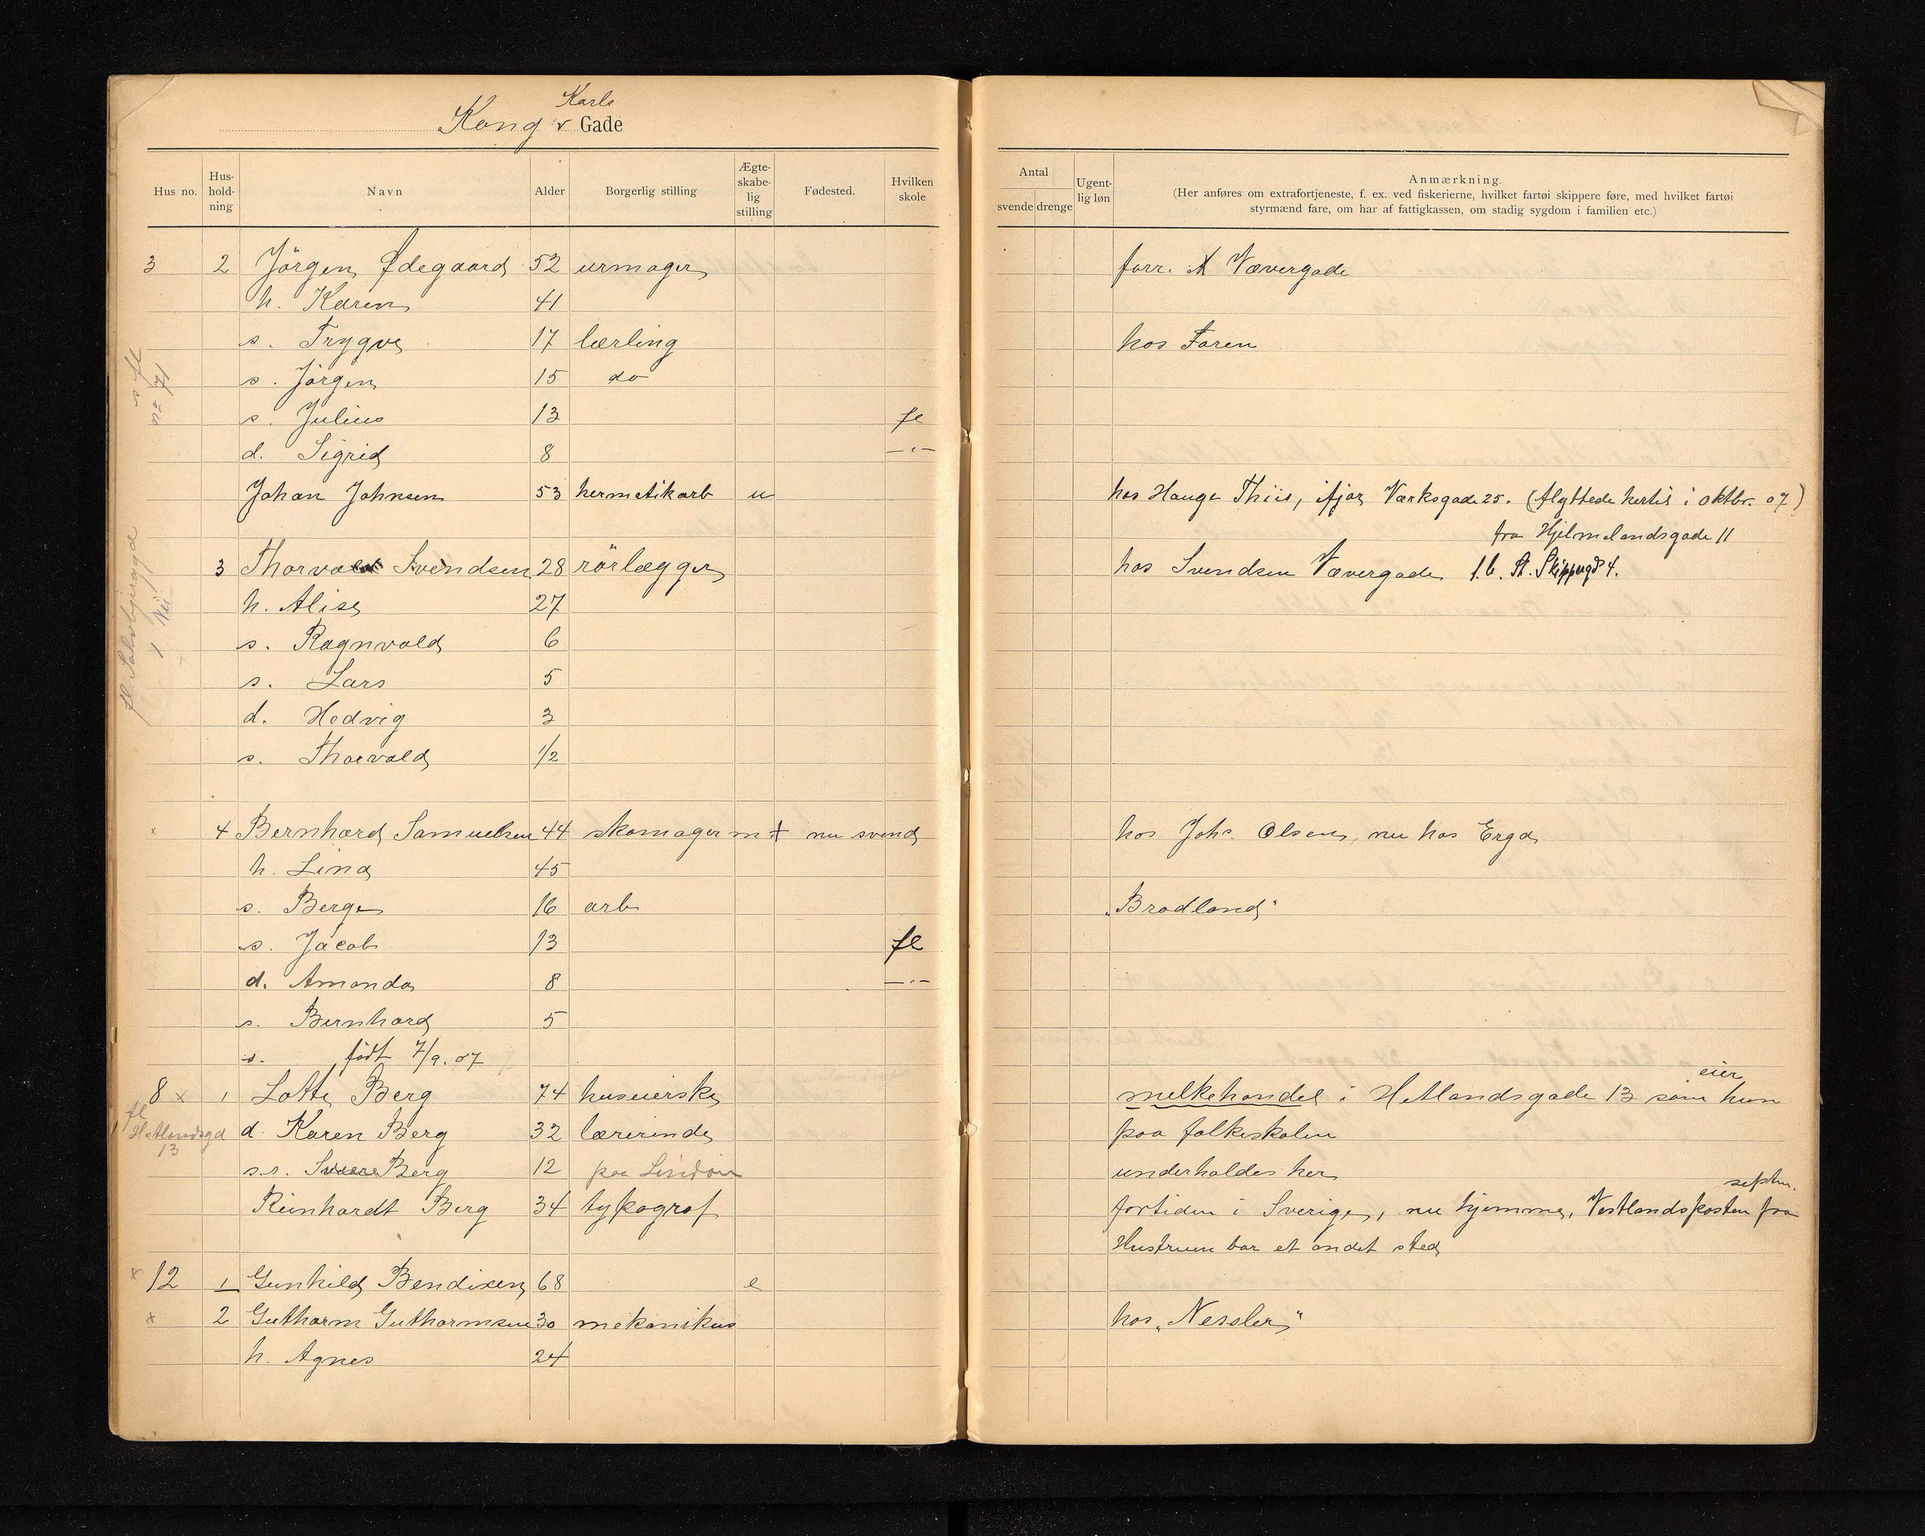 Karls
Kong v Gade
Hus no. Hus-hold-ning Navn Alder Borgerlig stilling Ægte-skabe-lig stilling Fødested. Hvilken skole
Antal svende drenge Ugent-lig løn Anmærkning.
(Her anføres om extrafortjeneste, f. ex. ved fiskerierne, hvilket fartøi skippere føre, med hvilket fartøi
styrmænd fare, om har af fattigkassen, om stadig sygdom i familien etc.)
3 2 Jörgen Ødegaard 52 urmager forr. Vævergade
h. Karen 41
s. Trygve 17 lærling hos Faren
s. Jörgen 15 do
s fl
no 71
s. Julius 13 fl
d. Sigrid 8 –"–
Johan Johnsen 53 hermetikarb u hos Hauge Thiis, ifjor Værksgade 25. (flyttede hertil i oktbr. 07)
fra Hjelmelandsgade 11
3 Thorvald Svendsen 28 rörlægger hos Svendsen Vævergade f.b. St. Skippergd 4.
h. Alise 27
s. Ragnvald 6
s. Lars 5
d. Hedvig 3
s. Thorvald 1/2
x 4 Bernhard Samuelsen 44 skomager m + nu svend hos Johs. Olsen, nu hos Erga
h. Lina 45
s. Berge 16 arb „Bradland"
s. Jacob 13 fl
d. Amanda 8 –"–
s. Bernhard 5
s. födt 7/9. 07
8 x 1 Lotte Berg 74 huseierske melkehandel i Hetlandsgade 13 som hun eier
fl Hetlandsgd 13
d. Karen Berg 32 lærerinde paa folkeskolen
s.s. Sverre Berg 12 underholdes her
Reinhardt Berg 34 typograf fortiden i Sverige, nu hjemme, Vestlandsposten fra septbr.
Hustruen bor et andet sted
x 12 1 Gunhild Bendixen 68 e
x 2 Guthorm Guthormsen 30 mekanikus hos „Nessler"
h. Agnes 24